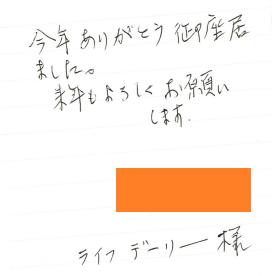 今年ありがとう御座居
ました。
来年もよろしくお願い
します.
ライフ デーリー 様